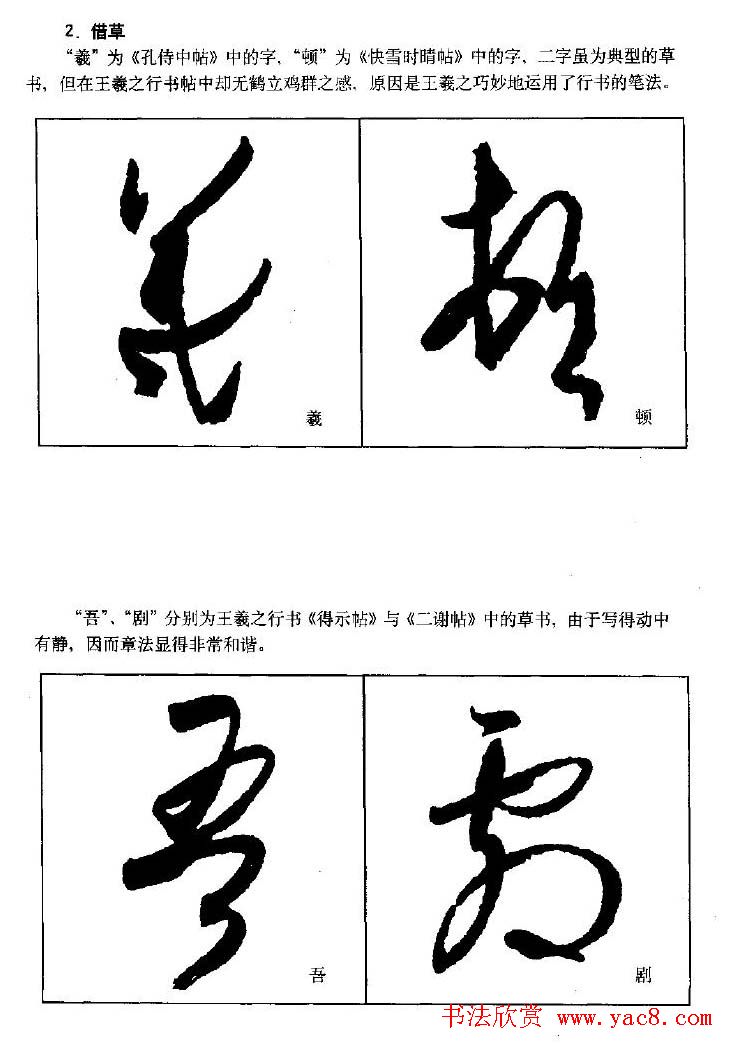 2. 借草
“羲”为《孔侍中帖》中的字，“顿”为《快雪时晴帖》中的字，二字虽为典型的草
书，但在王羲之行书帖中却无鹤立鸡群之感，原因是王羲之巧妙地运用了行书的笔法。
羲
顿
羲
顿
“吾”、“剧”分别为王羲之行书《得示帖》与《二谢帖》中的草书，由于写得动中
有静，因而章法显得非常和谐。
吾
剧
吾
剧
书法欣赏 www.yac8.com